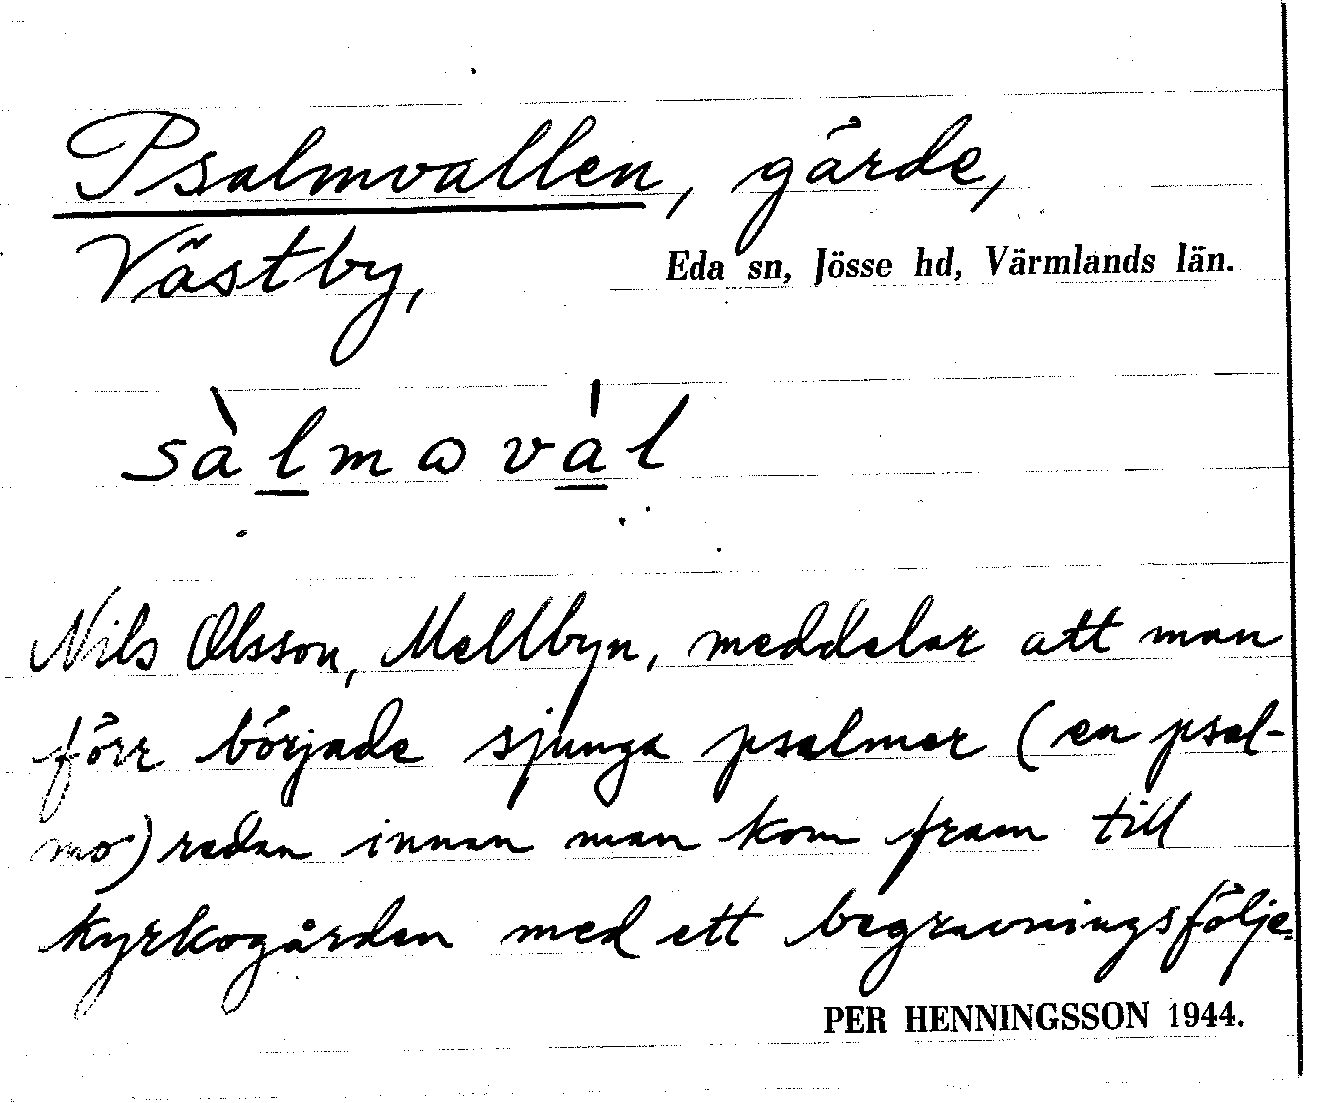 Psalmvallen, gärde,
Västby,
Eda sn, Jösse hd, Värmlands län.
sàlmɷvál
Nils Olsson, Mellbyn, meddelar att man
förr började sjunga psalmer (en psal-
mo) redan innan man kom fram till
kyrkogården med ett begravningsfölje.
PER HENNINGSSON 1944.